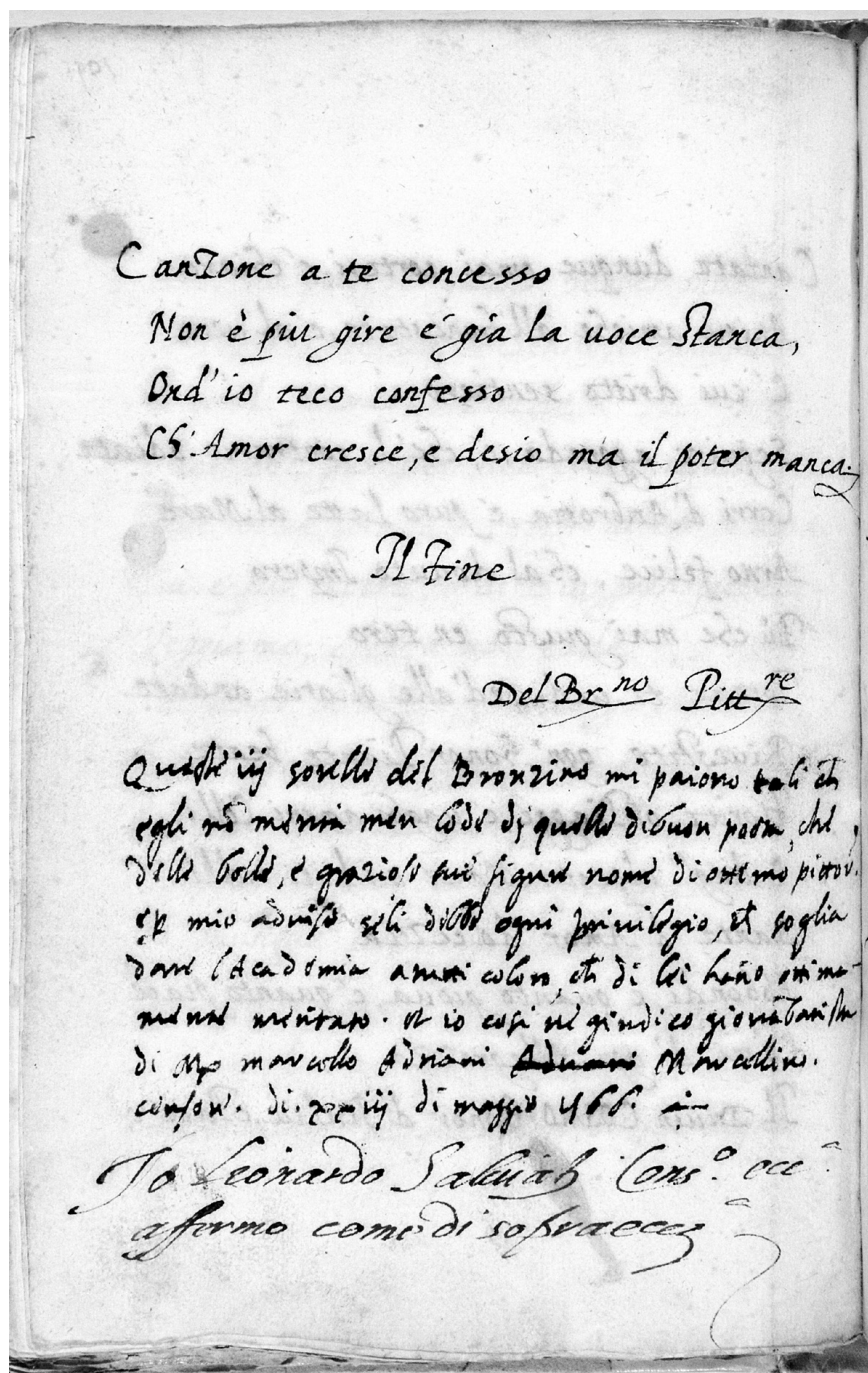 Canzone a te concesso
Non è piu gire e' gia la uoce stanca,
Ond' io teco confesso
Ch' Amor cresce, e desio ma il poter manca.
Il Fine
Del Br.no Pitt.re
Queste iij sorelle del Bronzino mi paiono tali ch
egli nō merita men lode di quelle di buon poeta, che
delle belle, e graziose sue figure nome di ottimo pittor.
et p mio aduiso seli debbe ogni priuilegio, ch soglia
dare l'Academia a tutti coloro, ch di lei hāno ottima-
mente meritato. et io cosi ne giudico giouābatista
di Mr marcello Adriani Marcellino.
censore. di. xxiij di maggio 1566.
Io Leonardo Saluiati Cons.o ecc.a
affermo come di sopra ecc.a